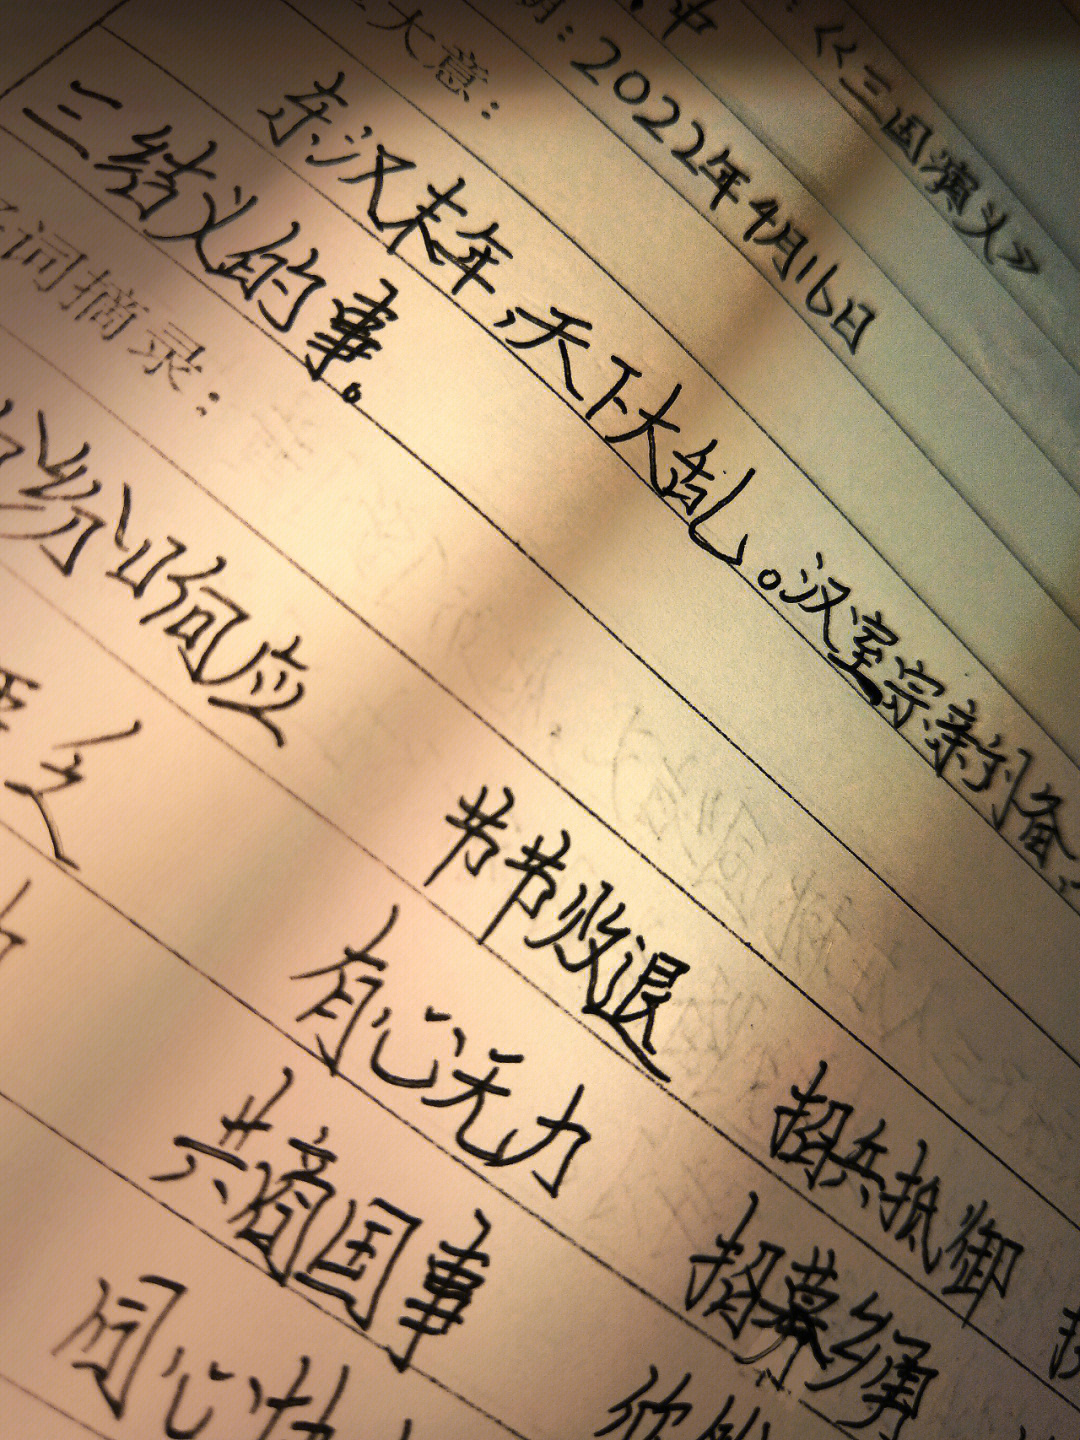 《三国演义》
中
：2022年4月16日
大意：
东汉末年，天下大乱。汉室宗亲刘备
三结义的事。
词摘录：
纷纷响应
节节败退
招兵抵御
有心无力
招募乡勇
共商国事
同心协
欣然